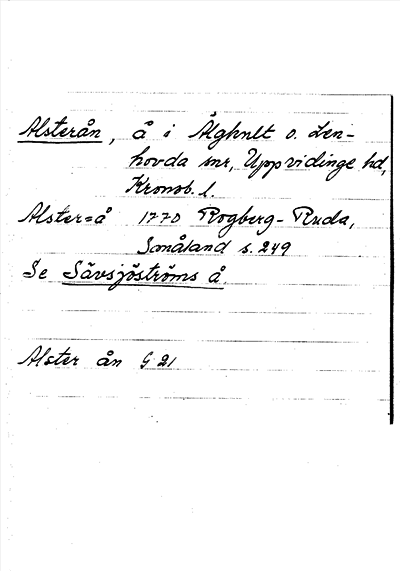 Alsterån, å i Älghult o. Len-
hovda snr, Uppvidinge hd,
Kronob. l.
Alster=å 1770 Rogberg-Ruda,
Småland s. 249
Se Sävsjöströms å.
Alster ån G 21